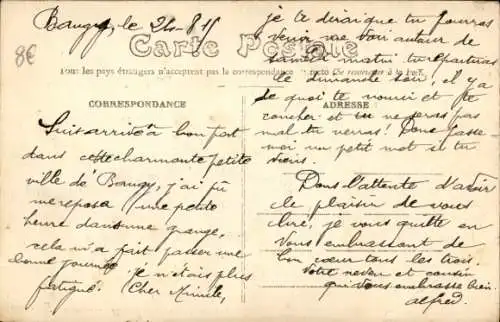 Baugy, le 24-8-15
8€
Carte Postale
Tous les pays étrangers n'acceptent pas la correspondance au recto (Se renseigner à la Poste)
CORRESPONDANCE
Suis arrivé à bon port
dans cette charmante petite
ville de Baugy, j'ai pu
me reposer une petite
heure dans une grange.
cela m'a fait passer une
bonne journée je n'étais plus
fatigué. Cher Mimile,
je te dirai que tu pourras
venir me voir autour de
samedi matin tu repartiras
le dimanche soir, il y a
de quoi te nourir et te
coucher et tu ne seras pas
mal tu verras! Donc passe
moi un petit mot si tu
viens.
ADRESSE
Dans l'attente d'avoir
le plaisir de vous
lire, je vous quitte en
vous embrassant de
bon cœur tous les trois.
Votre neveu et cousin
qui vous embrasse bien.
alfred.